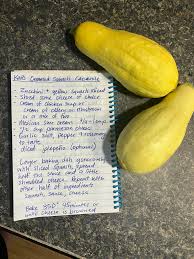 Creamed Squash Casserole
- Zucchini + yellow squash sliced
- Sliced some cheese of choice
cream of chicken soup or
cream of celery or mushroom
or a mix of two
- Mexican sour cream
- 1/2 cup parmesan cheese
- Garlic salt, pepper & rosemary
to taste
- diced jalapeño (optional)
Layer baking dish generously
with sliced squash, spread
half the sauce and a little
shredded cheese. Repeat with
other half of ingredients
squash, sauce, cheese
Bake 350° 45 minutes or
until cheese is browned